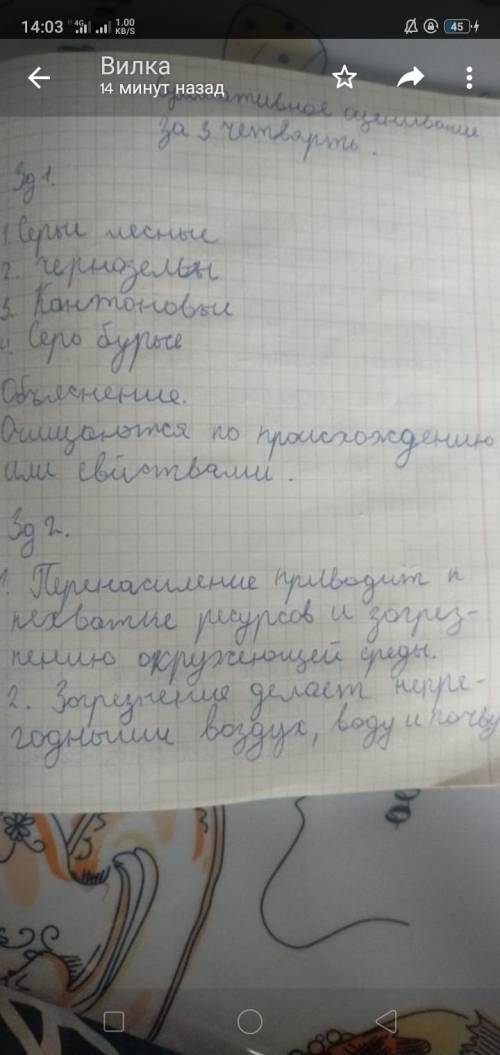 14:03 4G 1.00 KB/S 45
Вилка
14 минут назад
оценивание
за 3 четверть.
Зд 1.
1. Серыи лесные
2. Чернозельн
3. Кантоновыи
4. Серо бурые
Объяснение.
Очищаются по происхождению
или свйствами.
Зд 2.
1. Перенасиление приводит к
нехватке ресурсов и загрез-
нению окружеющей среды.
2. Загрезнения делает непре-
годными воздух, воду и почву